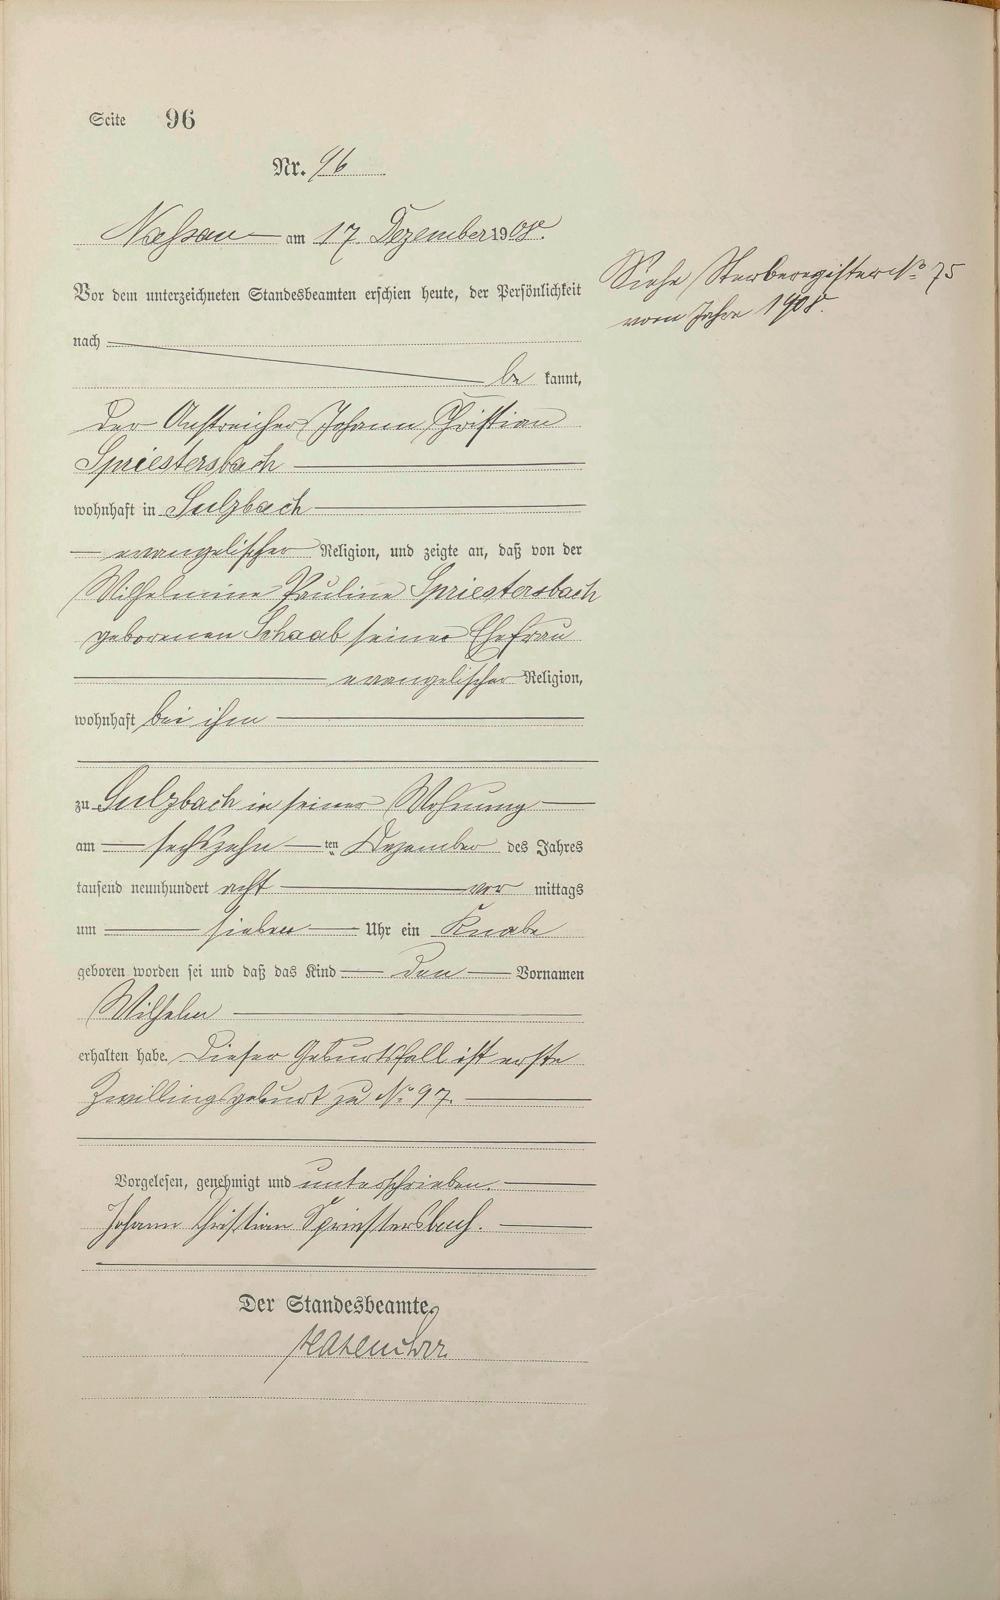 Seite 96
Nr. 96
Nassau am 17. Dezember 1908.
Siehe Sterberegister No 75
vom Jahre 1908.
Vor dem unterzeichneten Standesbeamten erschien heute, der Persönlichkeit
nach
be kannt,
der Anstreicher Johann Christian
Spriestersbach
wohnhaft in Sulzbach
evangelischer Religion, und zeigte an, daß von der
Wilhelmine Pauline Spriestersbach
geborenen Schaab seiner Ehefrau
evangelischer Religion,
wohnhaft bei ihm
zu Sulzbach in seiner Wohnung
am sechszehn ten Dezember des Jahres
tausend neunhundert acht vor mittags
um sieben Uhr ein Knabe
geboren worden sei und daß das Kind den Vornamen
Wilhelm
erhalten habe. Dieser Geburtsfall ist erste
Zwillingsgeburt zu No 97.
Vorgelesen, genehmigt und unterschrieben.
Johann Christian Spriestersbach.
Der Standesbeamte.